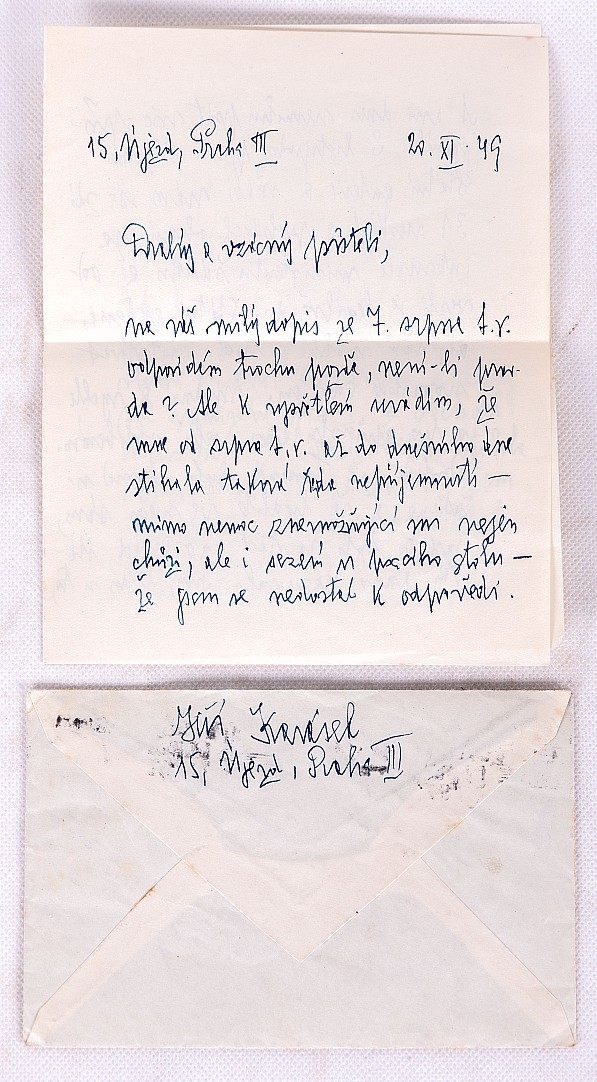 15, Újezd, Praha III 20. XI. 49
Drahý a vzácný příteli,
na váš milý dopis ze 7. srpna t.r.
odpovídám trochu pozdě, není-li prav-
da? Ale k vysvětlení uvádím, že
mne od srpna t.r. až do dnešního dne
stihala taková řada nepříjemností —
mimo nemoc znemožňující mi nejen
chůzi, ale i sezení u psacího stolu —
že jsem se nedostal k odpovědi.
Jiří Karásek
15, Újezd, Praha III